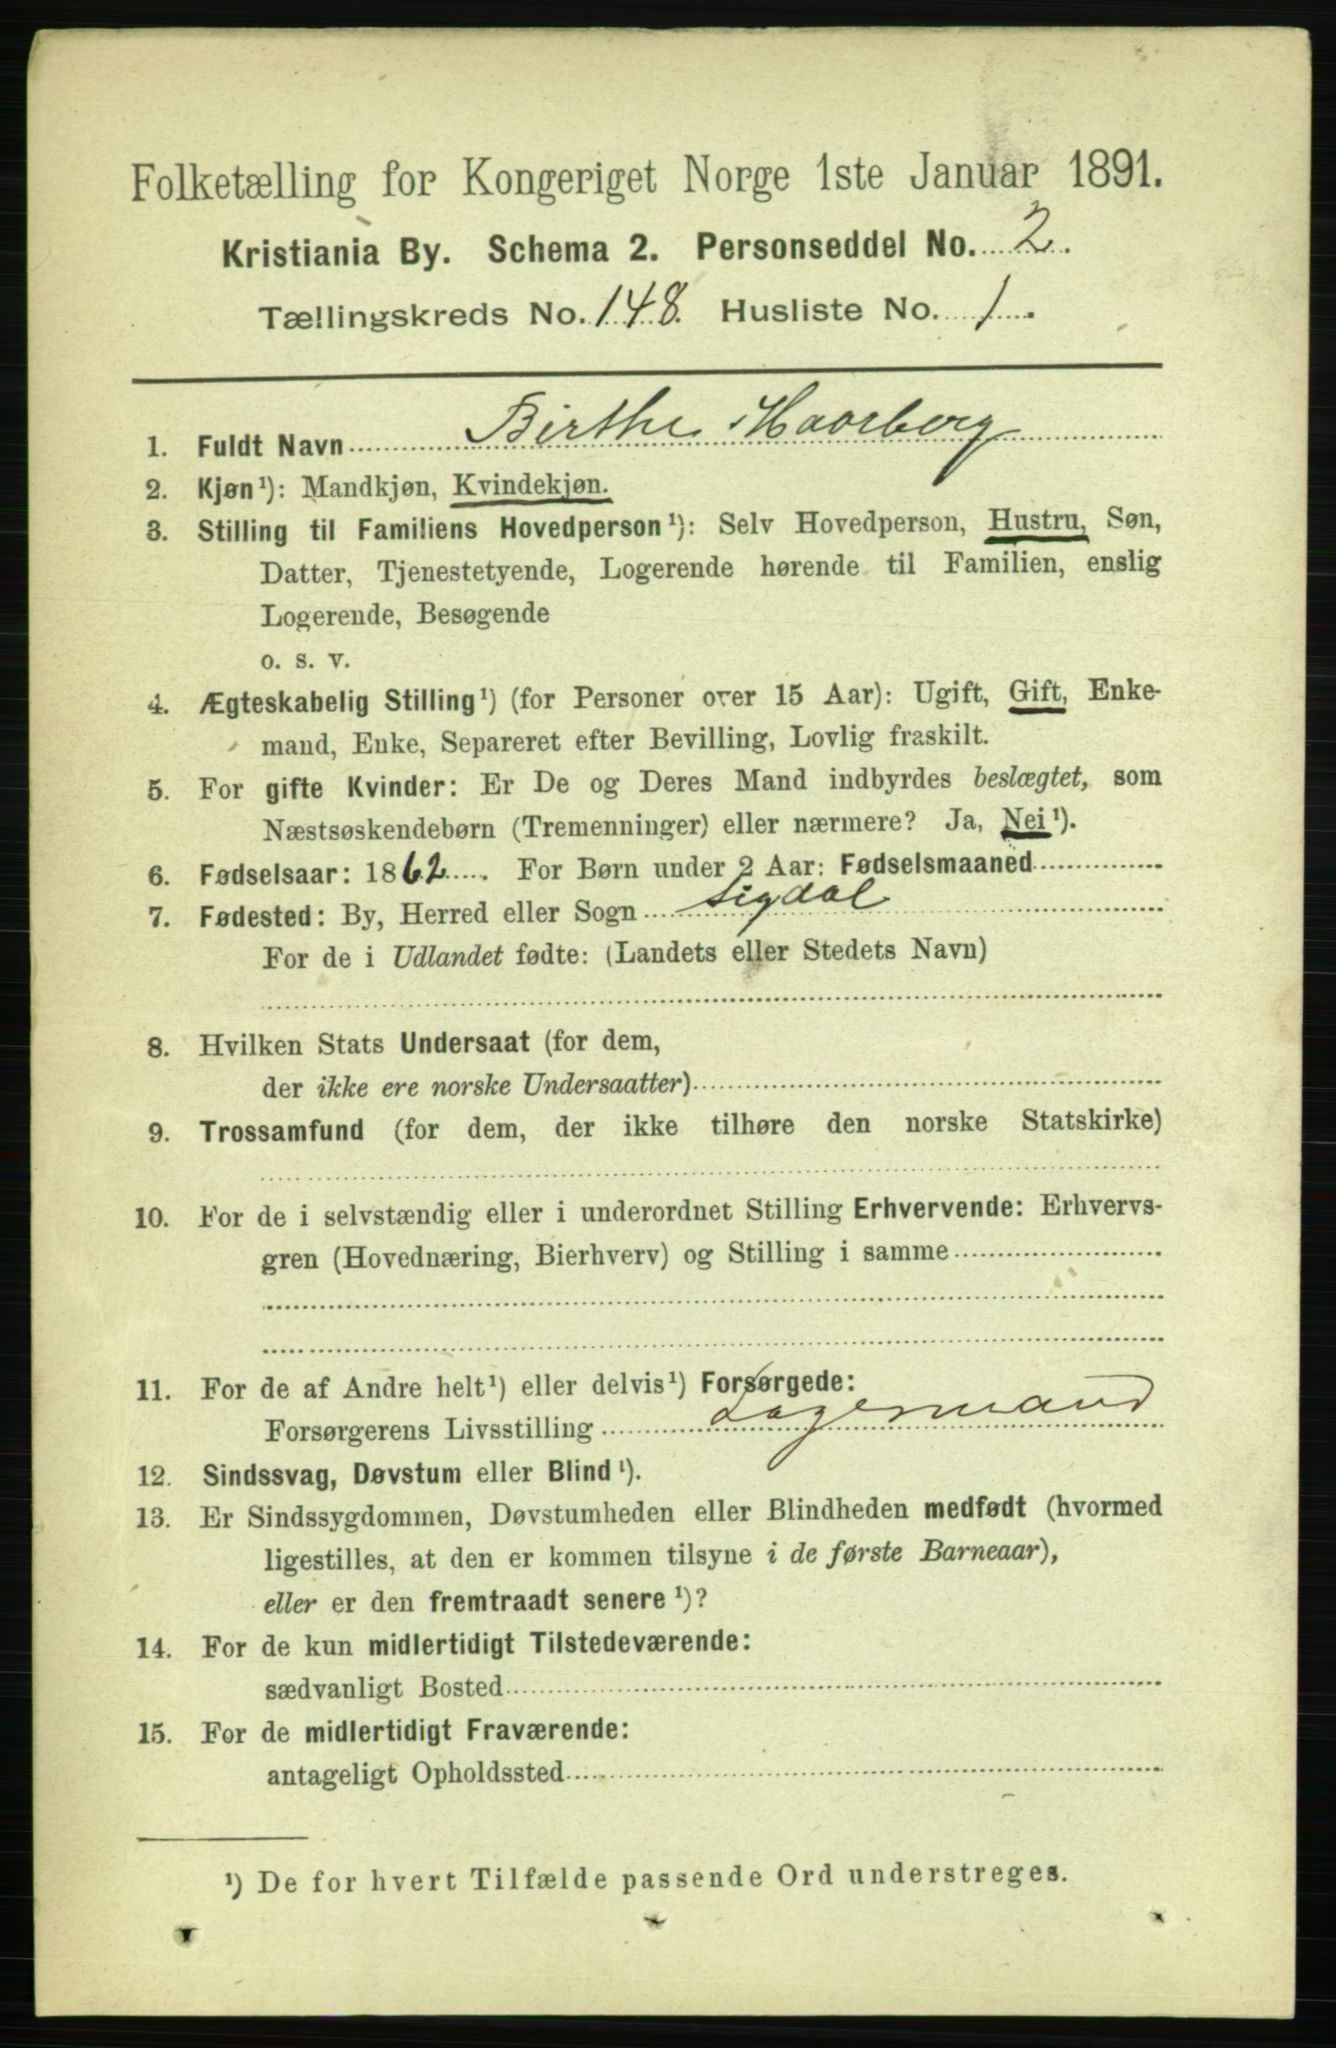 Folketælling for Kongeriget Norge 1ste Januar 1891.
Kristiania By. Schema 2. Personseddel No. 2.
Tællingskreds No. 148. Husliste No. 1.
1. Fuldt Navn Birthe Haarberg
2. Kjøn¹): Mandkjøn, Kvindekjøn.
3. Stilling til Familiens Hovedperson¹): Selv Hovedperson, Hustru, Søn,
Datter, Tjenestetyende, Logerende hørende til Familien, enslig
Logerende, Besøgende
o. s. v.
4. Ægteskabelig Stilling¹) (for Personer over 15 Aar): Ugift, Gift, Enke-
mand, Enke, Separeret efter Bevilling, Lovlig fraskilt.
5. For gifte Kvinder: Er De og Deres Mand indbyrdes beslægtet, som
Næstsøskendebørn (Tremenninger) eller nærmere? Ja, Nei¹).
6. Fødselsaar: 1862. For Børn under 2 Aar: Fødselsmaaned
7. Fødested: By, Herred eller Sogn Sigdal
For de i Udlandet fødte: (Landets eller Stedets Navn)
8. Hvilken Stats Undersaat (for dem,
der ikke ere norske Undersaatter)
9. Trossamfund (for dem, der ikke tilhøre den norske Statskirke)
10. For de i selvstændig eller i underordnet Stilling Erhvervende: Erhvervs-
gren (Hovednæring, Bierhverv) og Stilling i samme
11. For de af Andre helt¹) eller delvis¹) Forsørgede:
Forsørgerens Livsstilling Lagermand
12. Sindssvag, Døvstum eller Blind¹).
13. Er Sindssygdommen, Døvstumheden eller Blindheden medfødt (hvormed
ligestilles, at den er kommen tilsyne i de første Barneaar),
eller er den fremtraadt senere¹)?
14. For de kun midlertidigt Tilstedeværende:
sædvanligt Bosted
15. For de midlertidigt Fraværende:
antageligt Opholdssted
¹) De for hvert Tilfælde passende Ord understreges.